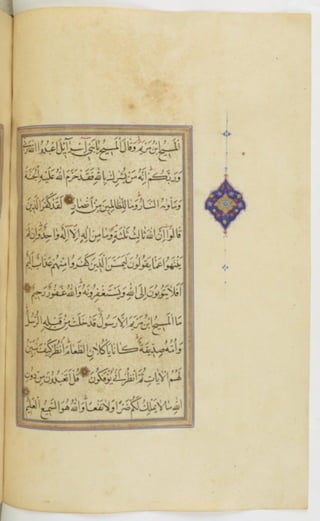 المسيح ابن مريم وقال المسيح يا بني اسرائيل اعبدوا الله ربي
وربكم انه من يشرك بالله فقد حرم الله عليه الجنة
وماويه النار وما للظالمين من انصار لقد كفر الذين
قالوا ان الله ثالث ثلثة وما من اله الا اله واحد وان لم
ينتهوا عما يقولون ليمسن الذين كفروا منهم عذاب اليم
افلا يتوبون الى الله ويستغفرونه والله غفور رحيم
ما المسيح ابن مريم الا رسول قد خلت من قبله الرسل
وامه صديقة كانا ياكلان الطعام انظر كيف نبين
لهم الايات ثم انظر انى يؤفكون قل اتعبدون من دون
الله ما لا يملك لكم ضرا ولا نفعا والله هو السميع العليم